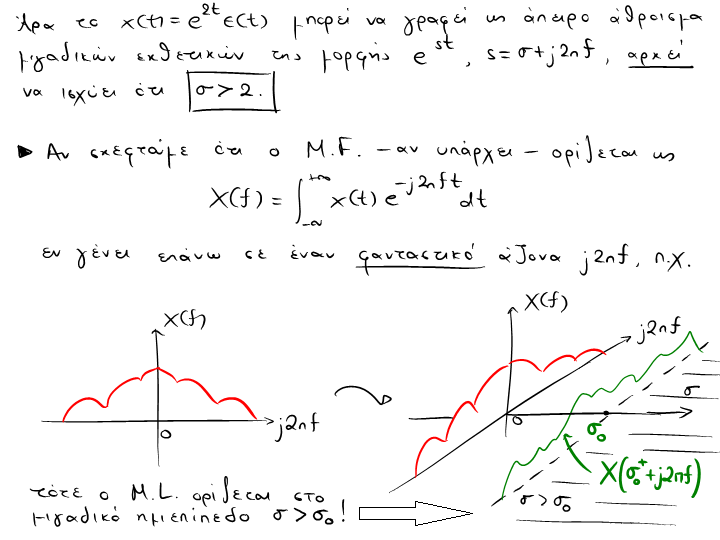 Άρα το x(t) = e^{2t} ε(t) μπορεί να γραφεί ως άπειρο άθροισμα
μιγαδικών εκθετικών της μορφής e^{st}, s = σ + j2πf, αρκεί
να ισχύει ότι σ > 2.
▶ Αν σκεφτούμε ότι ο Μ.F. – αν υπάρχει – ορίζεται ως
X(f) = ∫_{-∞}^{+∞} x(t) e^{-j2πft} dt
εν γένει επάνω σε έναν φανταστικό άξονα j2πf, π.χ.
X(f)
j2πf
0
X(f)
j2πf
σ
0
σ₀
X(σ₀⁺+j2πf)
σ > σ₀
τότε ο Μ.L. ορίζεται στο
μιγαδικό ημιεπίπεδο σ > σ₀!